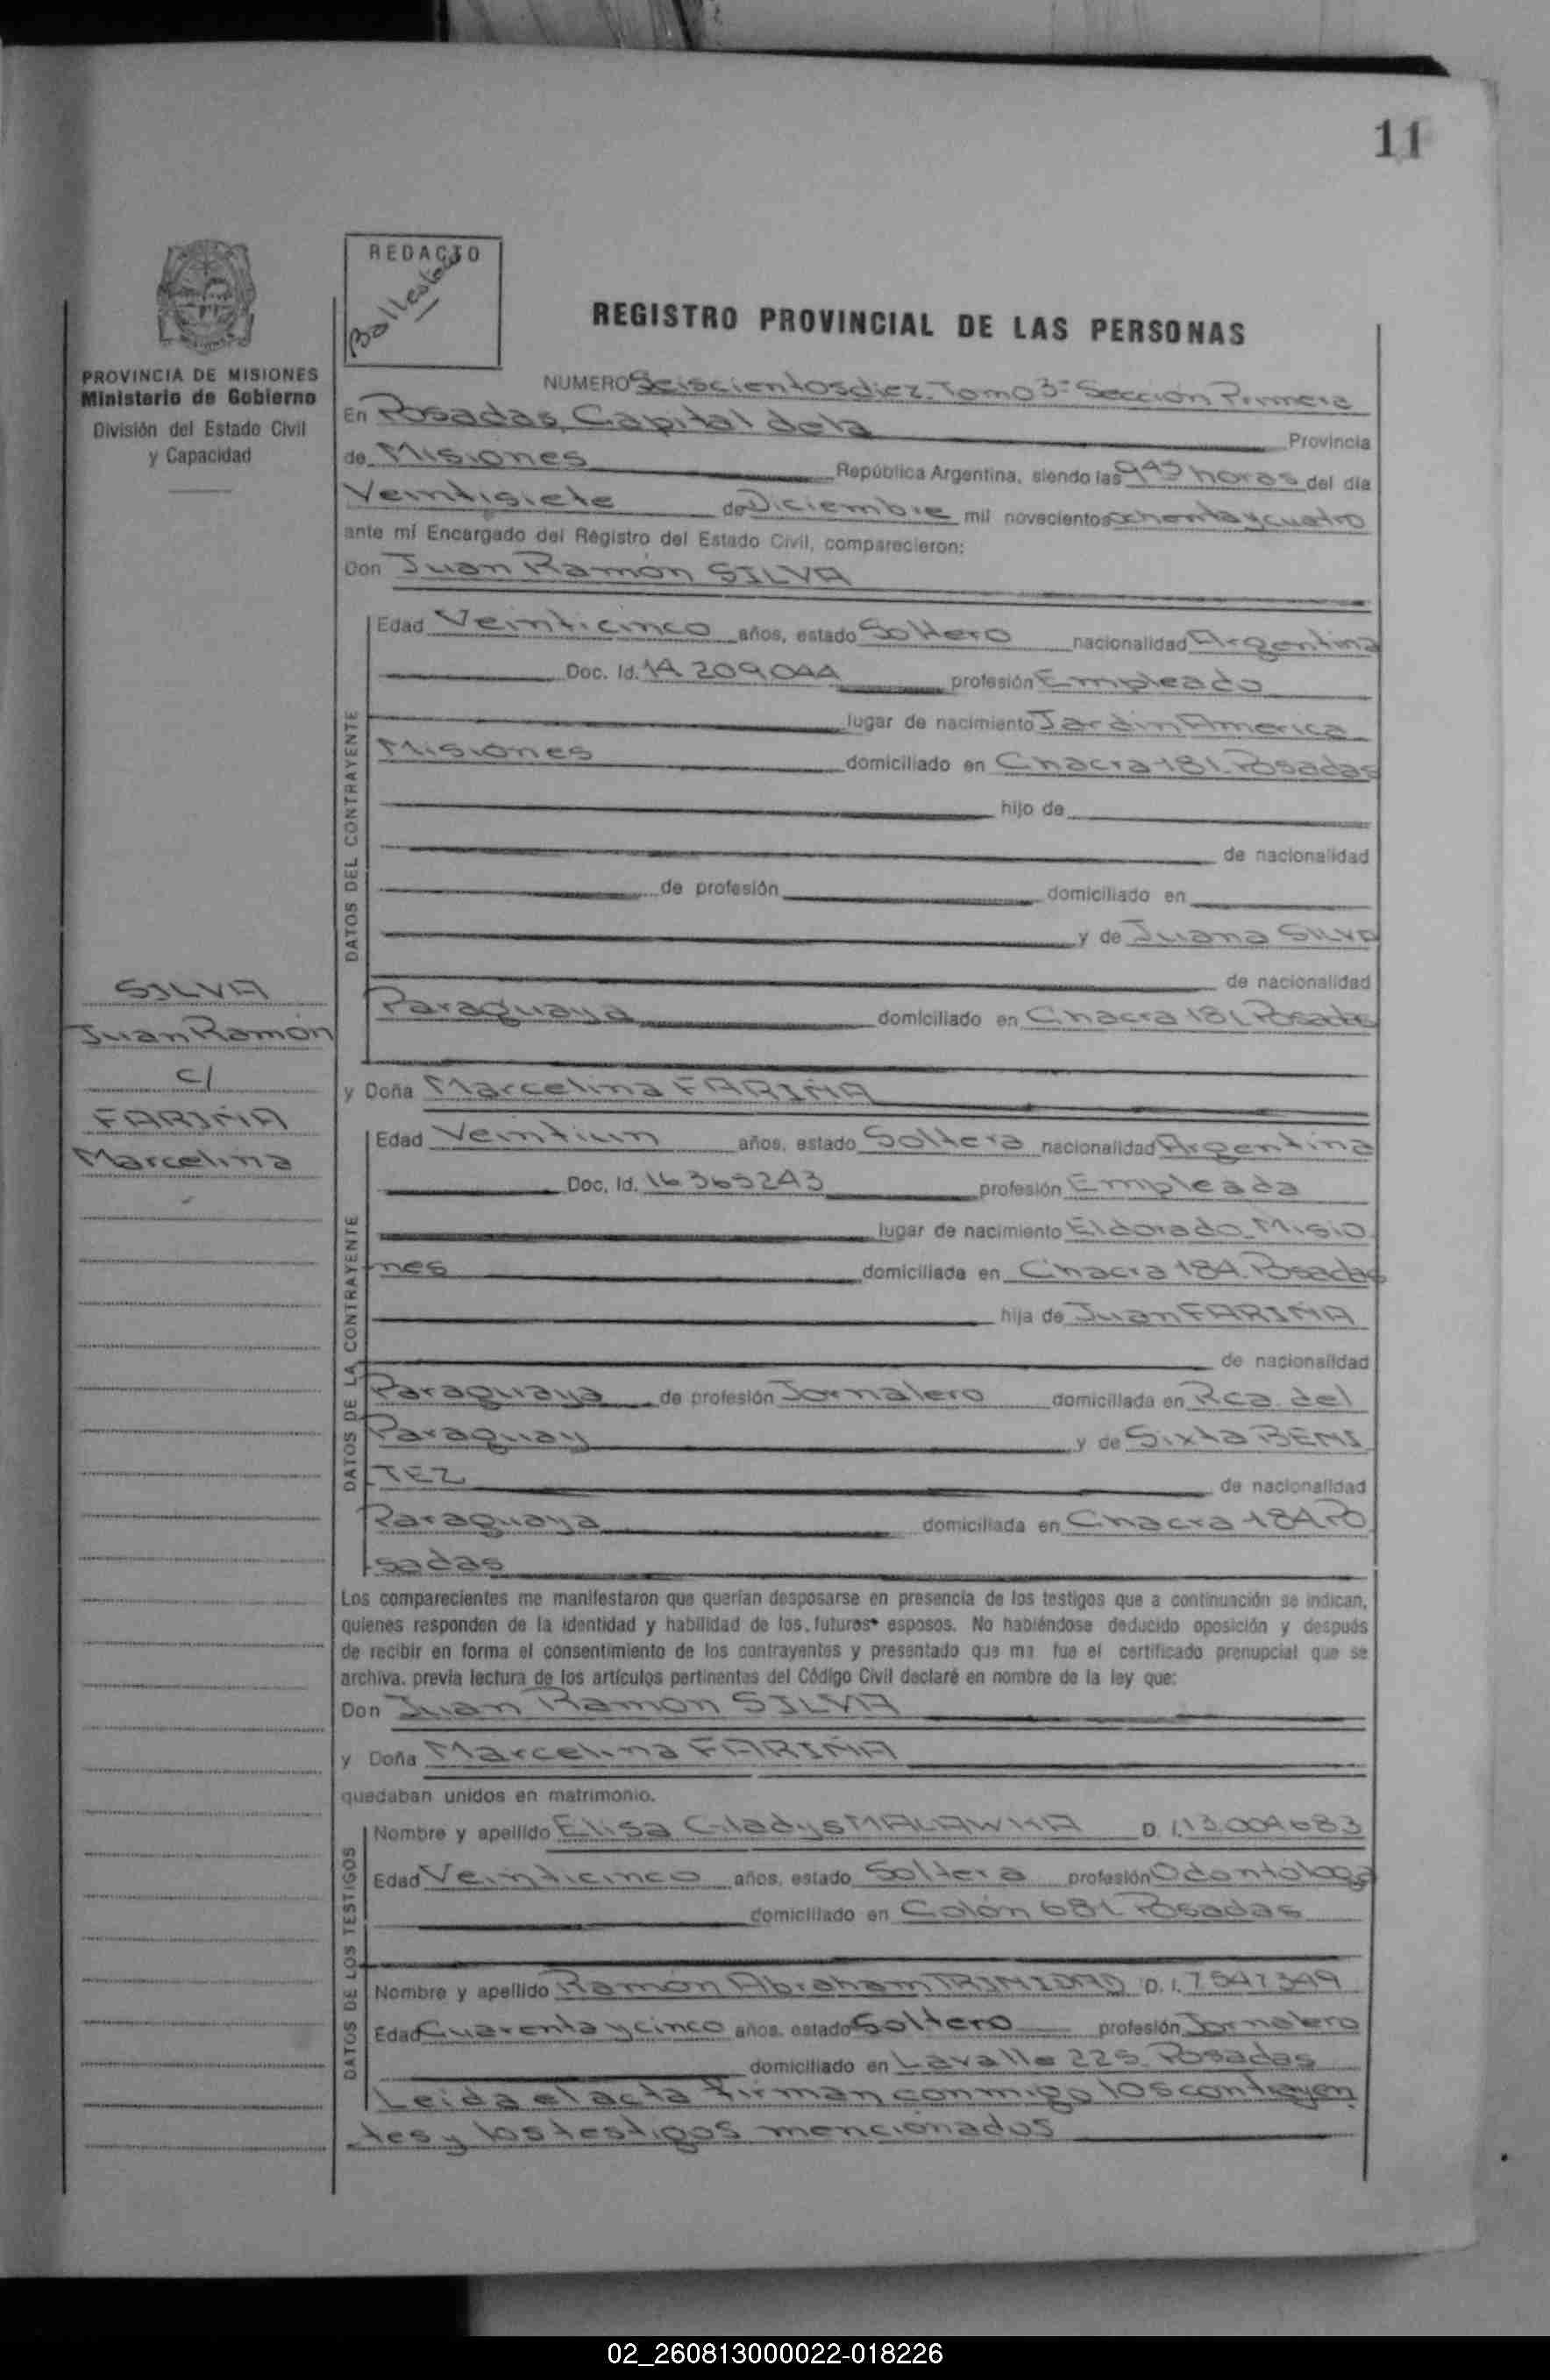 11
REDACTO
Ballesteros
REGISTRO PROVINCIAL DE LAS PERSONAS
PROVINCIA DE MISIONES
Ministerio de Gobierno
División del Estado Civil
y Capacidad
NUMERO Seiscientos diez. Tomo 3º Sección Primera
En Posadas, Capital de la Provincia
de Misiones República Argentina, siendo las 9 45 horas del día
Veintisiete de Diciembre mil novecientos ochenta y cuatro
ante mí Encargado del Registro del Estado Civil, comparecieron:
Don Juan Ramón SILVA
DATOS DEL CONTRAYENTE
Edad Veinticinco años, estado Soltero nacionalidad Argentina
Doc. Id. 14 209.044 profesión Empleado
lugar de nacimiento Jardin America
Misiones domiciliado en Chacra 181. Posadas
hijo de
de nacionalidad
de profesión domiciliado en
y de Juana Silva
de nacionalidad
Paraguaya domiciliado en Chacra 181 Posadas
SILVA
Juan Ramón
c/
FARIÑA
Marcelina
y Doña Marcelina FARIÑA
DATOS DE LA CONTRAYENTE
Edad Veintiun años, estado Soltera nacionalidad Argentina
Doc. Id. 16 365243 profesión Empleada
lugar de nacimiento Eldorado Misio
nes domiciliada en Chacra 184. Posadas
hija de Juan FARIÑA
de nacionalidad
Paraguaya de profesión Jornalero domiciliada en Rca. del
Paraguay y de Sixta BENI
TEZ de nacionalidad
Paraguaya domiciliada en Chacra 184 Po
sadas
Los comparecientes me manifestaron que querían desposarse en presencia de los testigos que a continuación se indican,
quienes responden de la identidad y habilidad de los futuros esposos. No habiéndose deducido oposición y después
de recibir en forma el consentimiento de los contrayentes y presentado que me fue el certificado prenupcial que se
archiva, previa lectura de los artículos pertinentes del Código Civil declaré en nombre de la ley que:
Don Juan Ramon SILVA
y Doña Marcelina FARIÑA
quedaban unidos en matrimonio.
DATOS DE LOS TESTIGOS
Nombre y apellido Elisa Gladys MALAWKA D. I. 13.004683
Edad Veinticinco años, estado Soltera profesión Odontologa
domiciliado en Colón 681 Posadas
Nombre y apellido Ramón Abraham TRINIDAD D. I. 7547349
Edad Cuarenta y cinco años, estado Soltero profesión Jornalero
domiciliado en Lavalle 225 Posadas
Leida el acta firman conmigo los contrayen
tes y los testigos mencionados
02_260813000022-018226